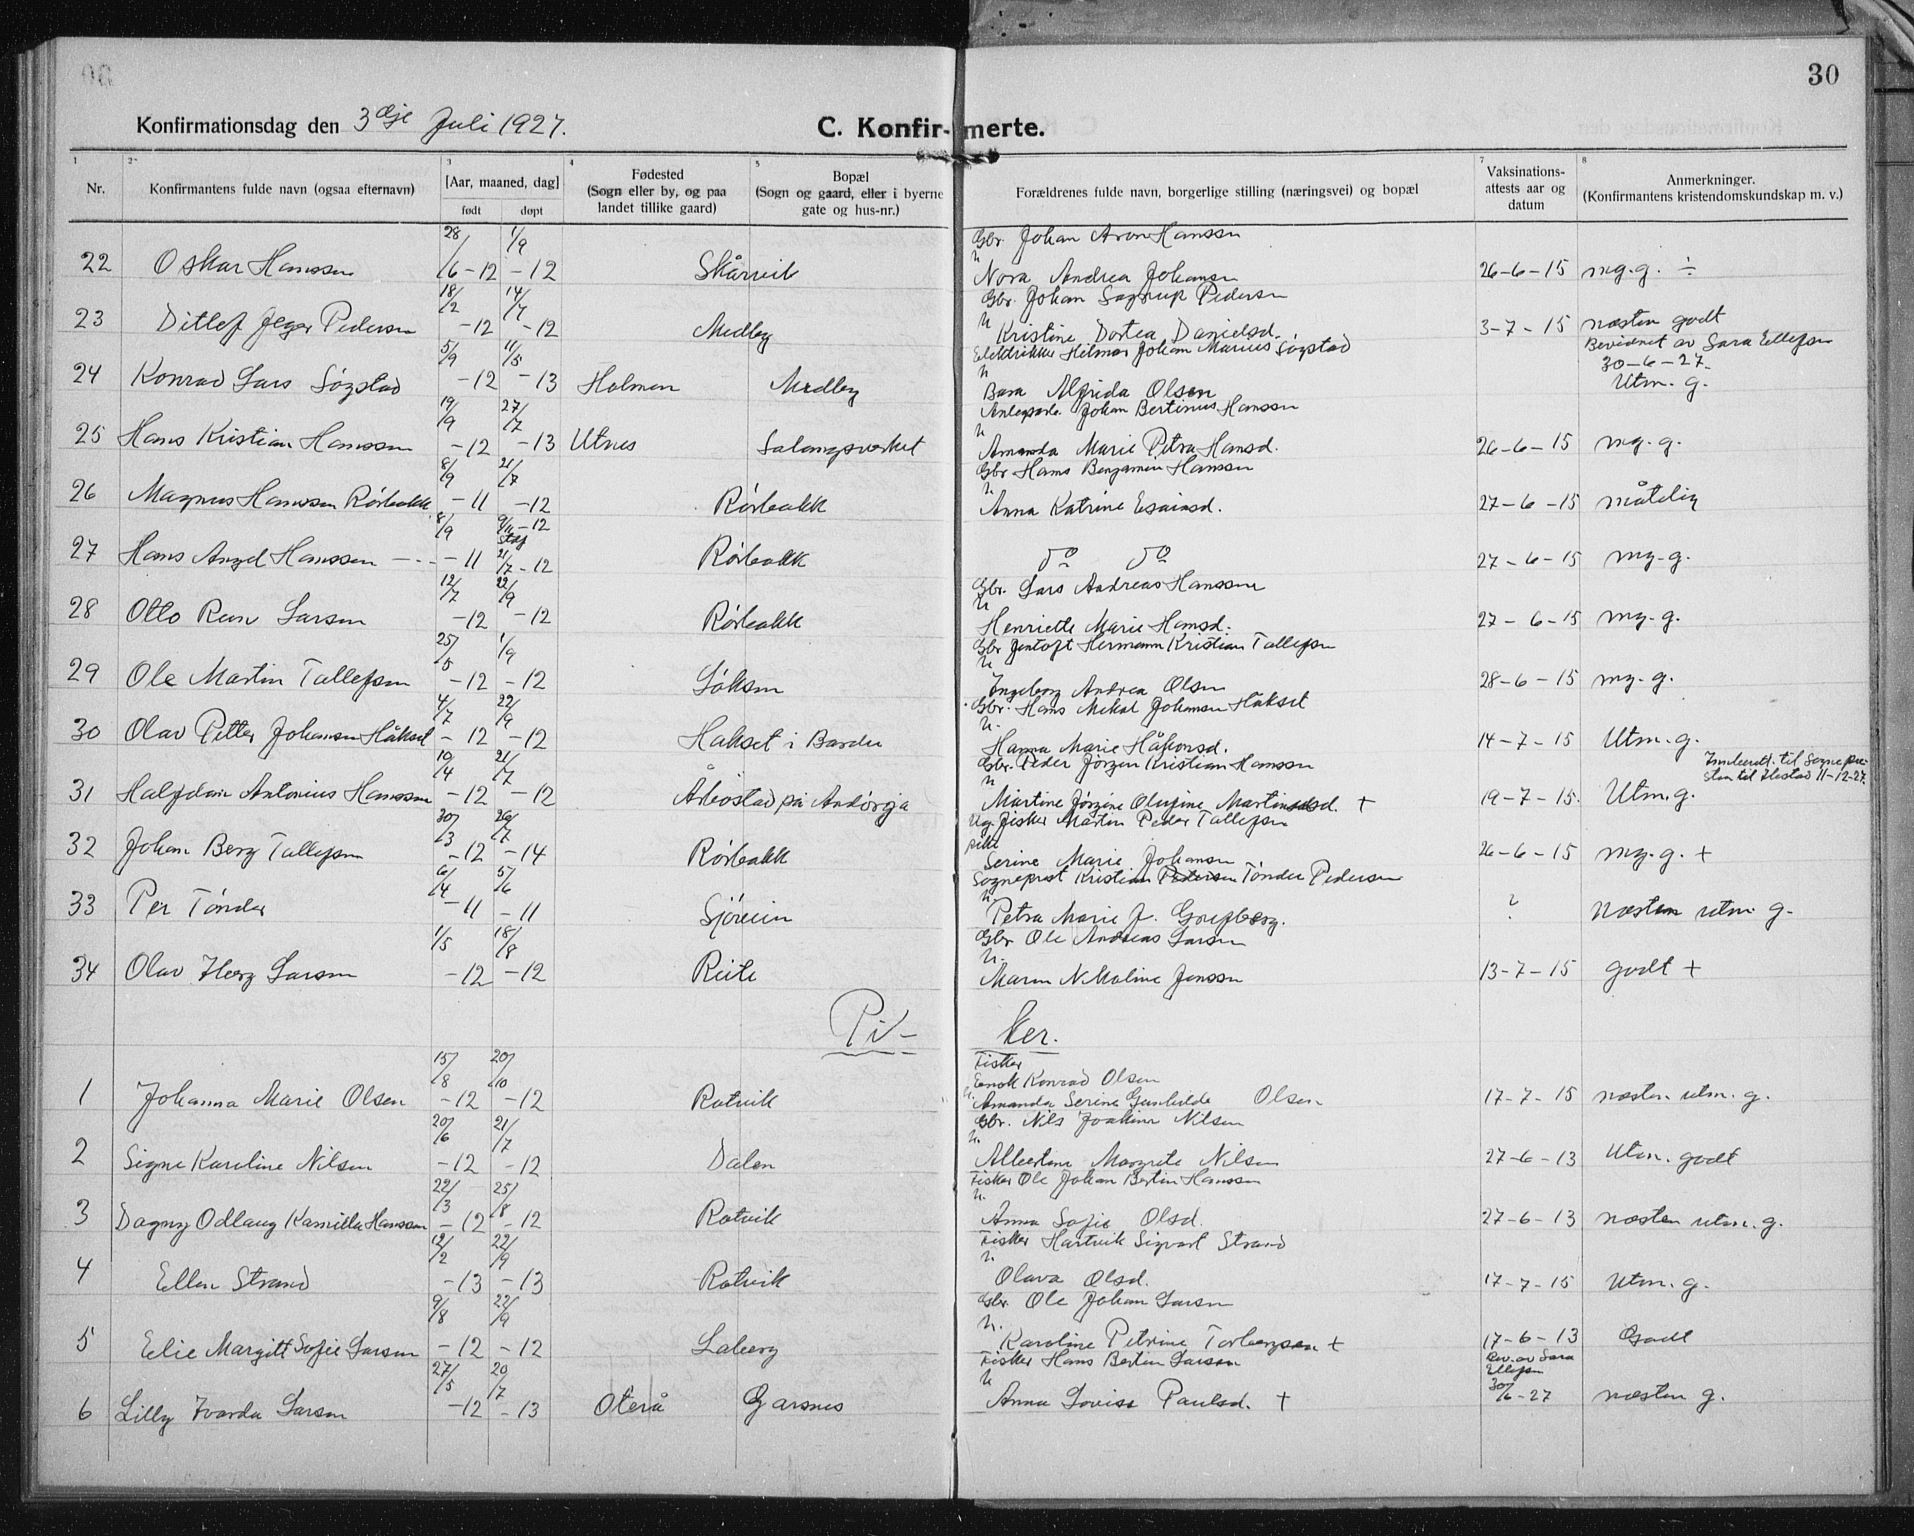 30
Konfirmationsdag den 3dje Juli 1927. C. Konfirmerte.
1 2 3 4 5 7 8
Nr. Konfirmantens fulde navn (ogsaa efternavn) [Aar, maaned, dag] født døpt Fødested (Sogn eller by, og paa landet tillike gaard) Bopæl (Sogn og gaard, eller i byerne gate og hus-nr.) Forældrenes fulde navn, borgerlige stilling (næringsvei) og bopæl Vaksinations-attests aar og datum Anmerkninger. (Konfirmantens kristendomskundskap m. v.)
28/6 1/9 Gbr. Johan Aron Hanssen
22 Oskar Hanssen -12 -12 Skårvik Nora Andrea Johansen 26-6-15 mg.g. ÷
18/2 14/7 Gbr. Johan Pedersen
23 Ditlef Jeger Pedersen -12 -12 Medby Kristine Dortea Danielsd. 3-7-15 næsten godt
5/9 11/5 Elektrikker Hilmar Johan Marius Søgstad Bevidnet av Sara Ellefsen 30-6-27
24 Konrad Lars Søgstad -12 -13 Holmen Medby Bara Alfrida Olsen Utm. g.
19/9 27/7 Anlegsarb. Johan Bertinus Hanssen
25 Hans Kristian Hanssen -12 -13 Utnes Salangsverket Amanda Marie Petra Hansd. 26-6-15 mg.g.
8/9 21/7 Gbr Hans Benjamin Hanssen
26 Magnus Hanssen Rørbakk -11 -12 Rørbakk Anna Katrine Esaiasd. 27-6-15 måtelig
8/9 -12
27 Hans Angel Hanssen — -11 21/7-12 Rørbakk do do 27-6-15 mg.g.
12/7 22/9 Gbr. Lars Andreas Hanssen
28 Otto Larsen -12 -12 Rørbakk Henriette Marie Hansd. 27-6-15 mg.g.
25/5 1/9 Gbr Jentoft Hermann Kristian Tollefsen
29 Ole Martin Tollefsen -12 -12 Løksen Ingeborg Andrea Olsen 28-6-15 mg.g.
4/7 22/9 Gbr. Hans Mikal Johansen Håkset
30 Olav Petter Johansen Håkset -12 -12 Hakset i Bardu Hanna Marie Håkonsd. 14-7-15 Utm. g.
19/4 21/7 Gbr. Peder Jørgen Kristian Hanssen Innberett. til Sognepresten til Ibestad 11-12-27.
31 Halfdan Antonius Hanssen -12 -12 Årbostad på Andørja Martine Jørgine Olufine Martinsd. + 19-7-15 Utm. g.
30/3 26/7 Ug. fisker Martin Peder Tollefsen
32 Johan Berg Tollefsen -12 -14 Rørbakk pike Serine Marie Johansen 26-6-15 mg.g. +
6/4 5/6 Sogneprest Kristian Pedersen Tønder Pedersen
33 Per Tønder -11 -11 Sjøvein Petra Marie J. ? næsten utm. g.
1/5 18/8 Gbr Ole Andreas Larsen
34 Olav Larsen -12 -12 Maren Nikoline Jenssen 13-7-15 godt +
Piker.
15/8 20/10 Fisker Enok Konrad Olsen
1 Johanna Marie Olsen -12 -12 Rotvik Amanda Serine Gunhilde Olsen 17-7-15 næsten utm. g.
20/6 21/7 Gbr. Nils Joakim Nilsen
2 Signe Karoline Nilsen -12 -12 Dalen Albertine Margrete Nilsen 27-6-13 Utm. godt
22/3 25/8 Fisker Ole Johan Bertin Hanssen
3 Dagny Odlaug Kamilla Hanssen -12 -12 Rotvik Anna Sofie Olsd. 27-6-13 næsten utm. g.
12/2 22/9 Fisker Hartvik Sigvart Strand
4 Ellen Strand -13 -13 Rotvik Olava Olsd. 17-7-15 Utm. g.
9/8 22/9 Gbr. Ole Johan Larsen
5 Elie Margitt Sofie Larsen -12 -12 Laberg Karoline Petrine Torbergsen + 17-6-13 Godt
27/5 20/7 Fisker Hans Bertin Larsen Bev. av Sara Ellefsen
6 Lilly Ivarda Larsen -12 -13 Oterå Garsnes Anna Lovise Paulsd. + 30/6-27 næsten g.